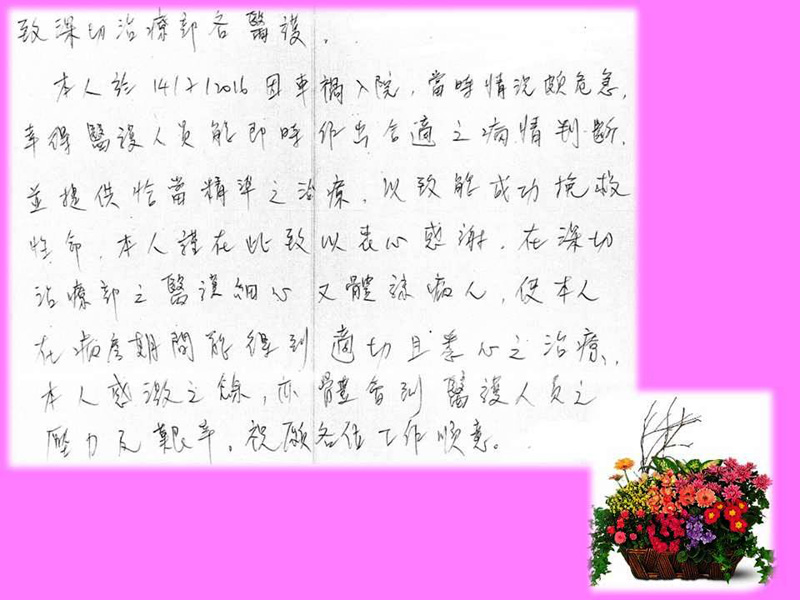 致深切治療部各醫護,
本人於 14/7/2016 因車禍入院, 當時情況頗危急,
幸得醫護人員能即時作出合適之病情判斷,
並提供恰當精準之治療, 以致能成功挽救
性命, 本人謹在此致以衷心感謝, 在深切
治療部之醫護細心又體諒病人, 使本人
在病危期間能得到適切且悉心之治療,
本人感激之餘, 亦體會到醫護人員之
壓力及艱辛, 祝願各位工作順意。